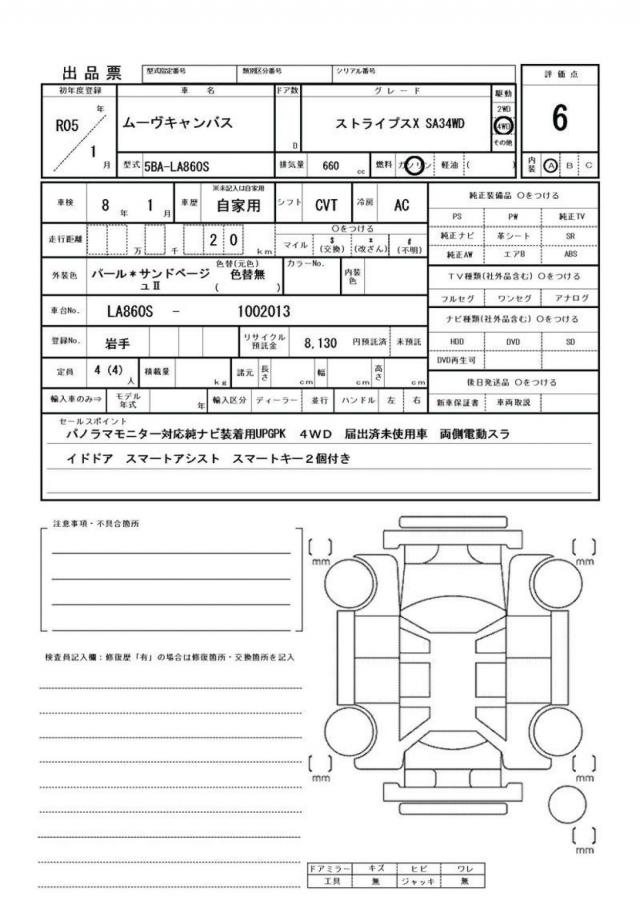 出品票 型式指定番号 類別区分番号 シリアル番号
初年度登録 車名 ドア数 グレード 駆動 評価点
R05 年 1 月
ムーヴキャンバス
D
ストライプスX SA34WD
2WD
4WD
その他
6
型式 5BA-LA860S 排気量 660 cc 燃料 ガソリン 軽油 ( ) 内装 A B C
車検 8 年 1 月 車歴 ※未記入は自家用 自家用 シフト CVT 冷房 AC
走行距離 万 千 2 0 km
○をつける
マイル $(交換) *(改ざん) #(不明)
外装色 パール*サンドベージュⅡ 色替(元色) 色替無 ( ) カラーNo. 内装色
車台No. LA860S - 1002013
登録No. 岩手 リサイクル預託金 8,130 円預託済 未預託
定員 4 (4) 人 積載量 kg 諸元 長さ cm 幅 cm 高さ cm
輸入車のみ⇒ モデル年式 年 輸入区分 ディーラー 並行 ハンドル 左 右
純正装備品 ○をつける
PS PW 純正TV
純正ナビ 革シート SR
純正AW エアB ABS
TV種類(社外品含む) ○をつける
フルセグ ワンセグ アナログ
ナビ種類(社外品含む) ○をつける
HDD DVD SD
DVD再生可
後日発送品 ○をつける
新車保証書 車両取説
セールスポイント
パノラマモニター対応純ナビ装着用UPGPK 4WD 届出済未使用車 両側電動スラ
イドドア スマートアシスト スマートキー2個付き
注意事項・不具合箇所
検査員記入欄：修復歴「有」の場合は修復箇所・交換箇所を記入
[ ] mm
[ ] mm
[ ] mm
[ ] mm
[ ] mm
ドアミラー キズ ヒビ ワレ
工具 無 ジャッキ 無